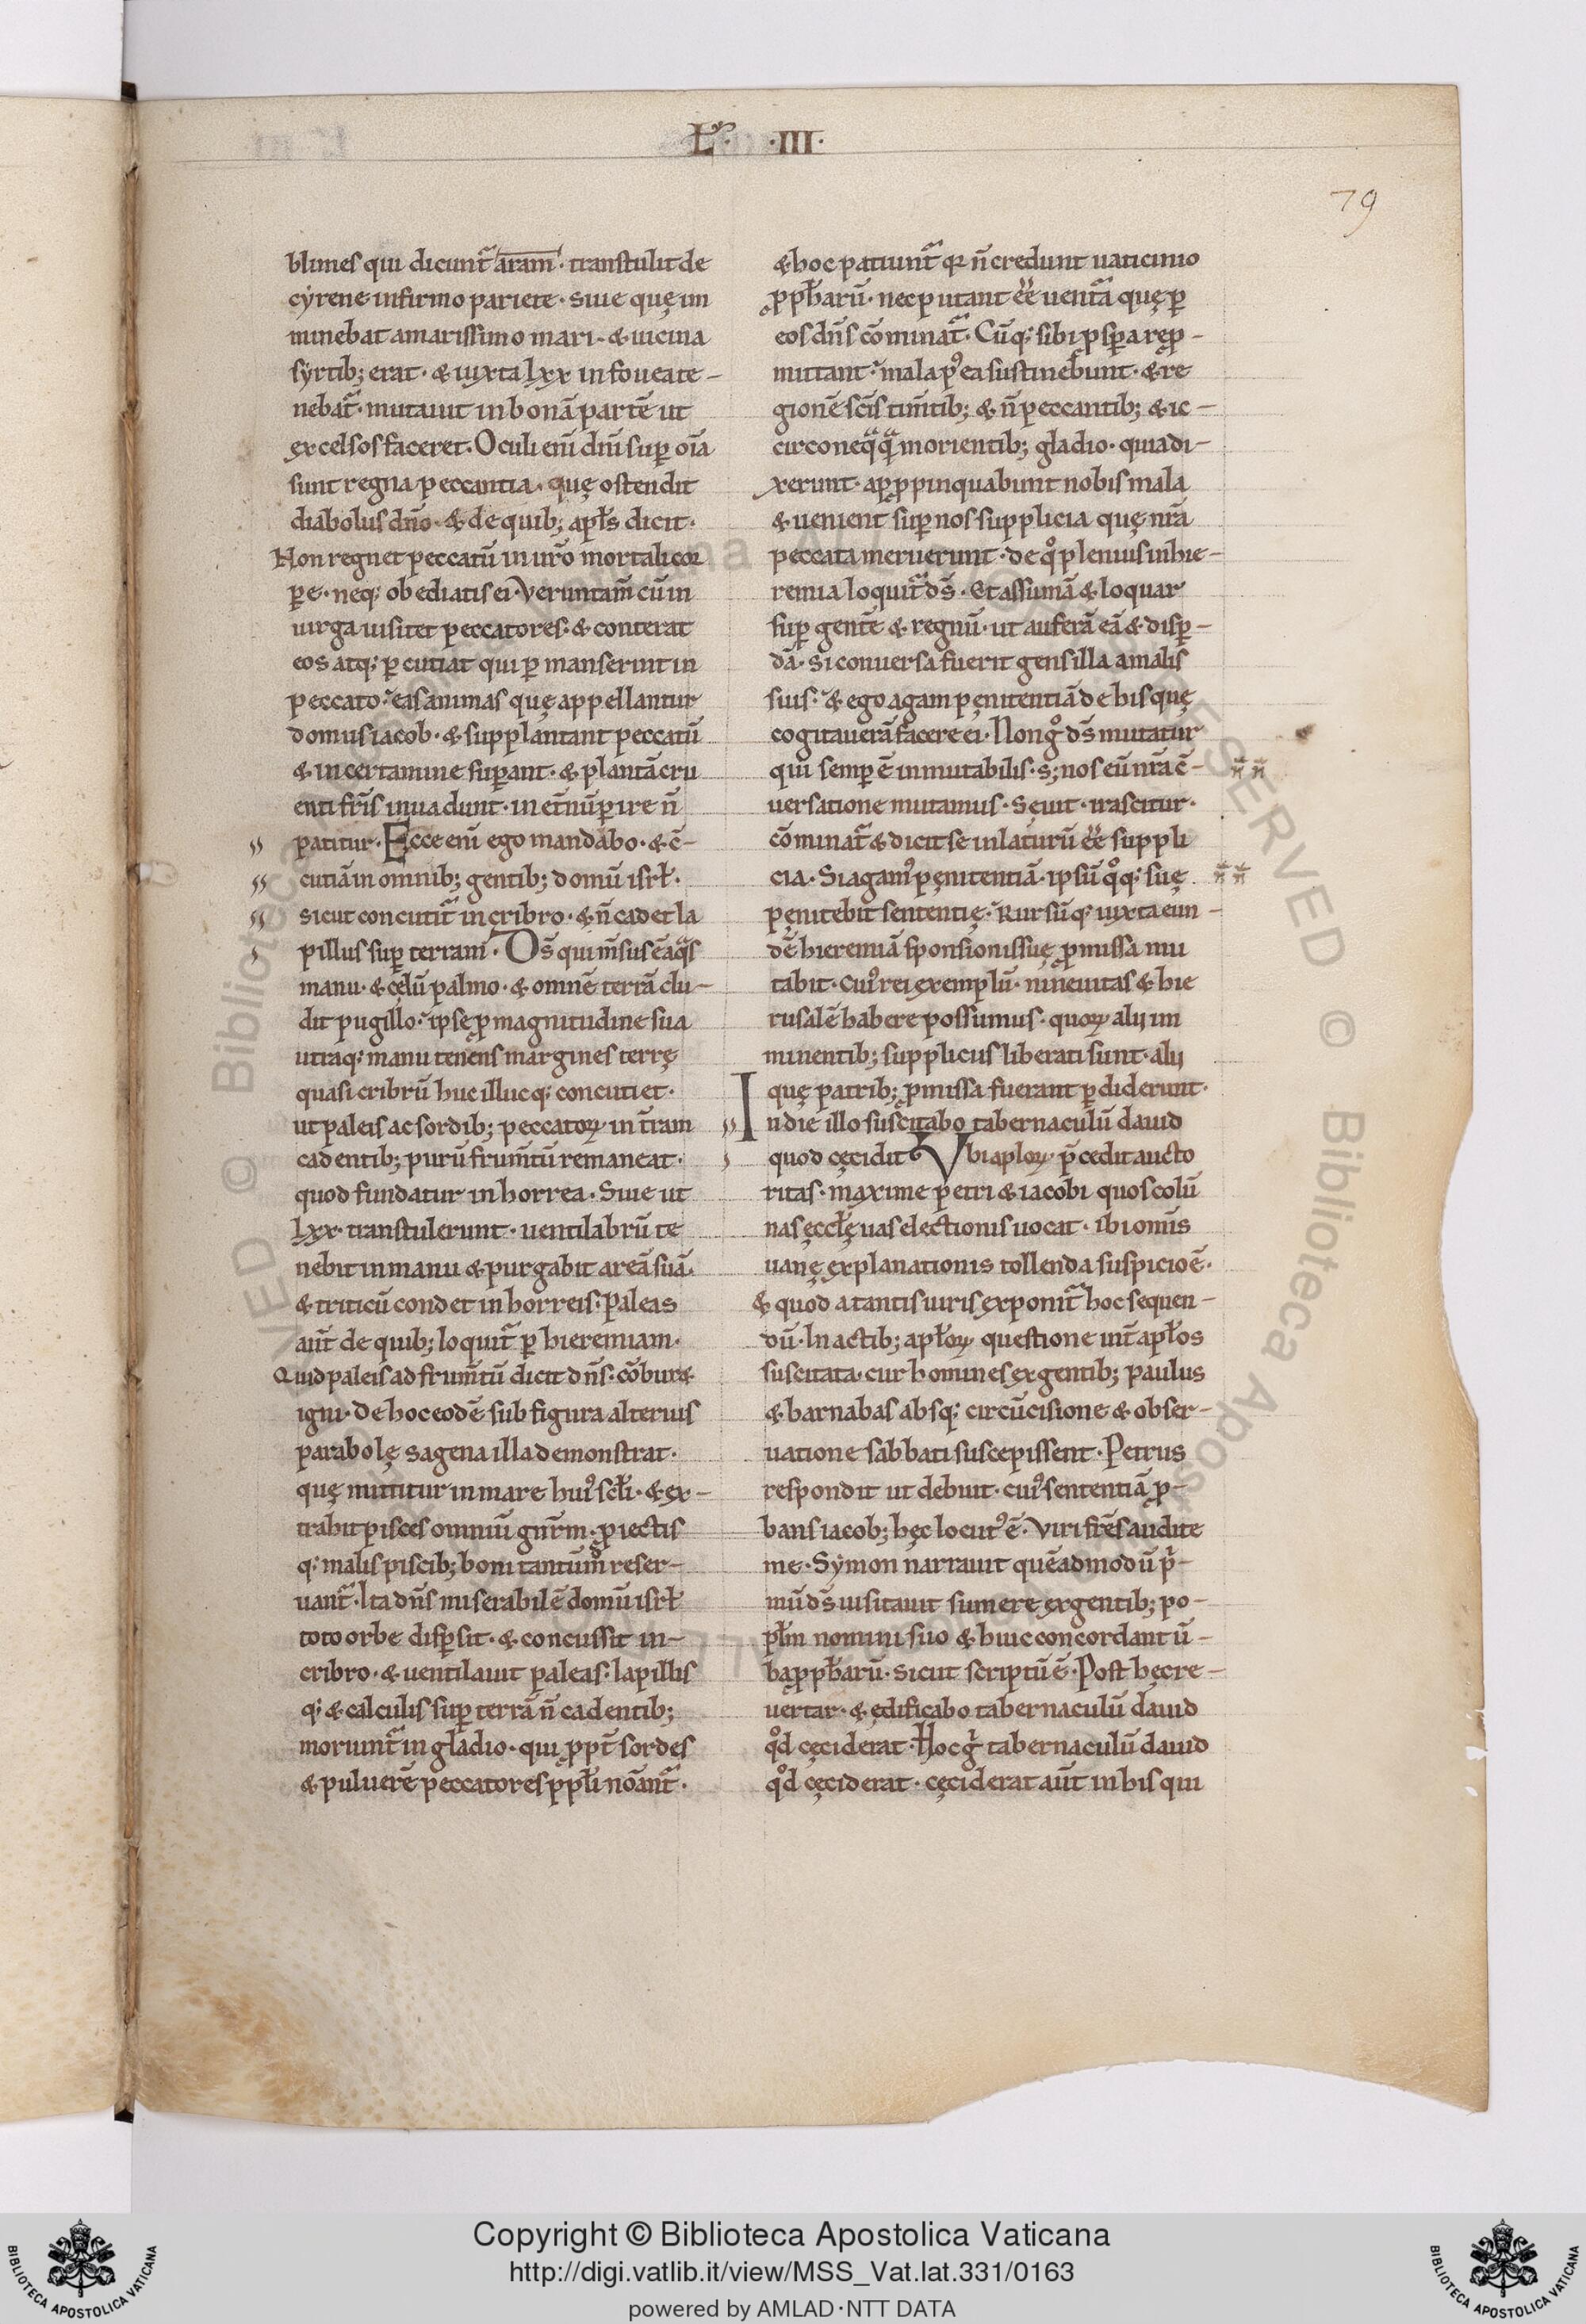 L· ·III·
79
blimes qui dicunt᷑ aram̅· transtulit de
cyrene infirmo pariete· siue quę im
minebat amarissimo mari· & uicina
syrtib; erat· & iuxta lxx in fouea te-
nebat᷑· mutauit in bonā partē ut
excelsos faceret· Oculi eni̅ dn̅i sup̱ oi̅a
sunt regna peccantia· quę ostendit
diabolus dn̅o· & de quib; apl̅s dicit·
Non regnet peccatū in ur̅o mortali cor
ꝑe· neq; obediatis ei· Veruntam̅ cū in
uirga uisitet peccatores· & conterat
eos atq; ꝑcutiat qui ꝑmanserint in
peccato· eas animas quę appellantur
domus iacob· & supplantant peccatū
& in certamine suꝑant· & plantā cru
enti fr̅is inuadunt· in et̅nū ꝑire n̅
patitur· Ecce eni̅ ego mandabo· & c̅-
cutiā in omnib; gentib; domū isrl̅·
sicut concutit᷑ in cribro· & n̅ cadet la
pillus suꝑ terram· Ds̅ qui m̅sus ē aq̈s
manu· & cęlū palmo· & omnē terrā clu-
dit pugillo· ipse ꝓ magnitudine sua
utraq; manu tenens margines terrę
quasi cribrū huc illucq; concutiet·
ut paleis ac sordib; peccatoꝝ in t̅ram
cadentib; purū frum̅tū remaneat·
quod fundatur in horrea· Siue ut
lxx· transtulerunt· uentilabrū te
nebit in manu & purgabit areā suā·
& triticū condet in horreis· Paleas
aut̅ de quib; loquit᷑ ꝑ hieremiam·
Quid paleis ad frum̅tū dicit dn̅s· cōbur&
igni· de hoc eodē sub figura alterius
parabolę sagena illa demonstrat·
quę mittitur in mare huiꝰ scl̅i· & ex-
trahit pisces omniū gn̅rm· ꝓiectis
q; malis piscib; boni tantūm̊ reser-
uant᷑· Ita dn̅s miserabilē domū isrl̅
toto orbe disꝑsit· & concussit in-
cribro· & uentilauit paleas· lapillis
q; & calculis suꝑ terrā n̅ cadentib;
moriunt᷑ in gladio· qui ꝓpt̅ sordes
& puluerē peccatores ppl̅i noa̅nt᷑·
& hoc patiunt᷑ qꝛ n̅ credunt uaticinio
ꝓph̅arū· nec putant ee̅ uent̅a quę ꝑ
eos dn̅s cōminat᷑· Cūq; sibi ꝓsꝑa reꝓ-
mittant· mala pꝰea sustinebunt· & re
gionē scīs tim̅tib; & n̅ peccantib; & ic-
circo neq̈q̈ morientib; gladio· quia di-
xerunt· apꝓpinquabunt nobis mala
& uenient suꝑ nos supplicia quę nr̅a
peccata meruerunt· de qͦ plenius in hie-
remia loquit᷑ ds̅· Et assumā & loquar
suꝑ gentē & regnū· ut auferā eā & disꝑ-
dā· Si conuersa fuerit gens illa a malis
suis· & ego agam pęnitentiā de his quę
cogitauerā facere ei· Non gͦ ds̅ mutatur
qui semꝑ ē inmutabilis· s; nos eū nr̅a c̅-
uersatione mutamus· Sęuit· irascitur·
cōminat᷑ & dicit se inlaturū ee̅ suppli
cia· Si agamꝰ pęnitentiā· ipsū qͦq; suę
pęnitebit sententię· Rursūq; iuxta eun-
dē hieremiā sponsionis suę ꝓmissa mu
tabit· cuiꝰ rei exemplū· nineuitas & hie
rusalē habere possumus· quoꝝ alij im
minentib; suppliciis liberati sunt· alij
quę patrib; ꝓmissa fuerant ꝑdiderunt·
In die illo suscitabo tabernaculū dauid
quod cęcidit· Vbi aploꝝ p̅cedit aucto
ritas· maxime petri & iacobi quos colū
nas ęccl̅ę uas electionis uocat· ibi omīs
uanę explanationis tollenda suspicioē·
& quod a tantis uiris exponit᷑ hoc sequen-
dū· In actib; apl̅oꝝ questione int̅ apl̅os
suscitata· cur homines ex gentib; paulus
& barnabas absq; circūcisione & obser-
uatione sabbati suscepissent· Petrus
respondit ut debuit· cuiꝰ sententiā ꝓ-
bans iacob; hęc locutꝰ ē· Viri fr̅es audite
me· Symon narrauit quēadmodū pͥ-
mū ds̅ uisitauit sumere ex gentib; po-
pl̅m nomini suo & huic concordant ū-
ba ꝓph̅arū· sicut scriptū ē· Post hęc re-
uertar· & ędificabo tabernaculū dauid
qͦd cęciderat· Hoc gͦ tabernaculū dauid
qͦd cęciderat· cęciderat aut̅ in his qui
Copyright © Biblioteca Apostolica Vaticana
http://digi.vatlib.it/view/MSS_Vat.lat.331/0163
powered by AMLAD·NTT DATA
BIBLIOTECA APOSTOLICA VATICANA
BIBLIOTECA APOSTOLICA VATICANA